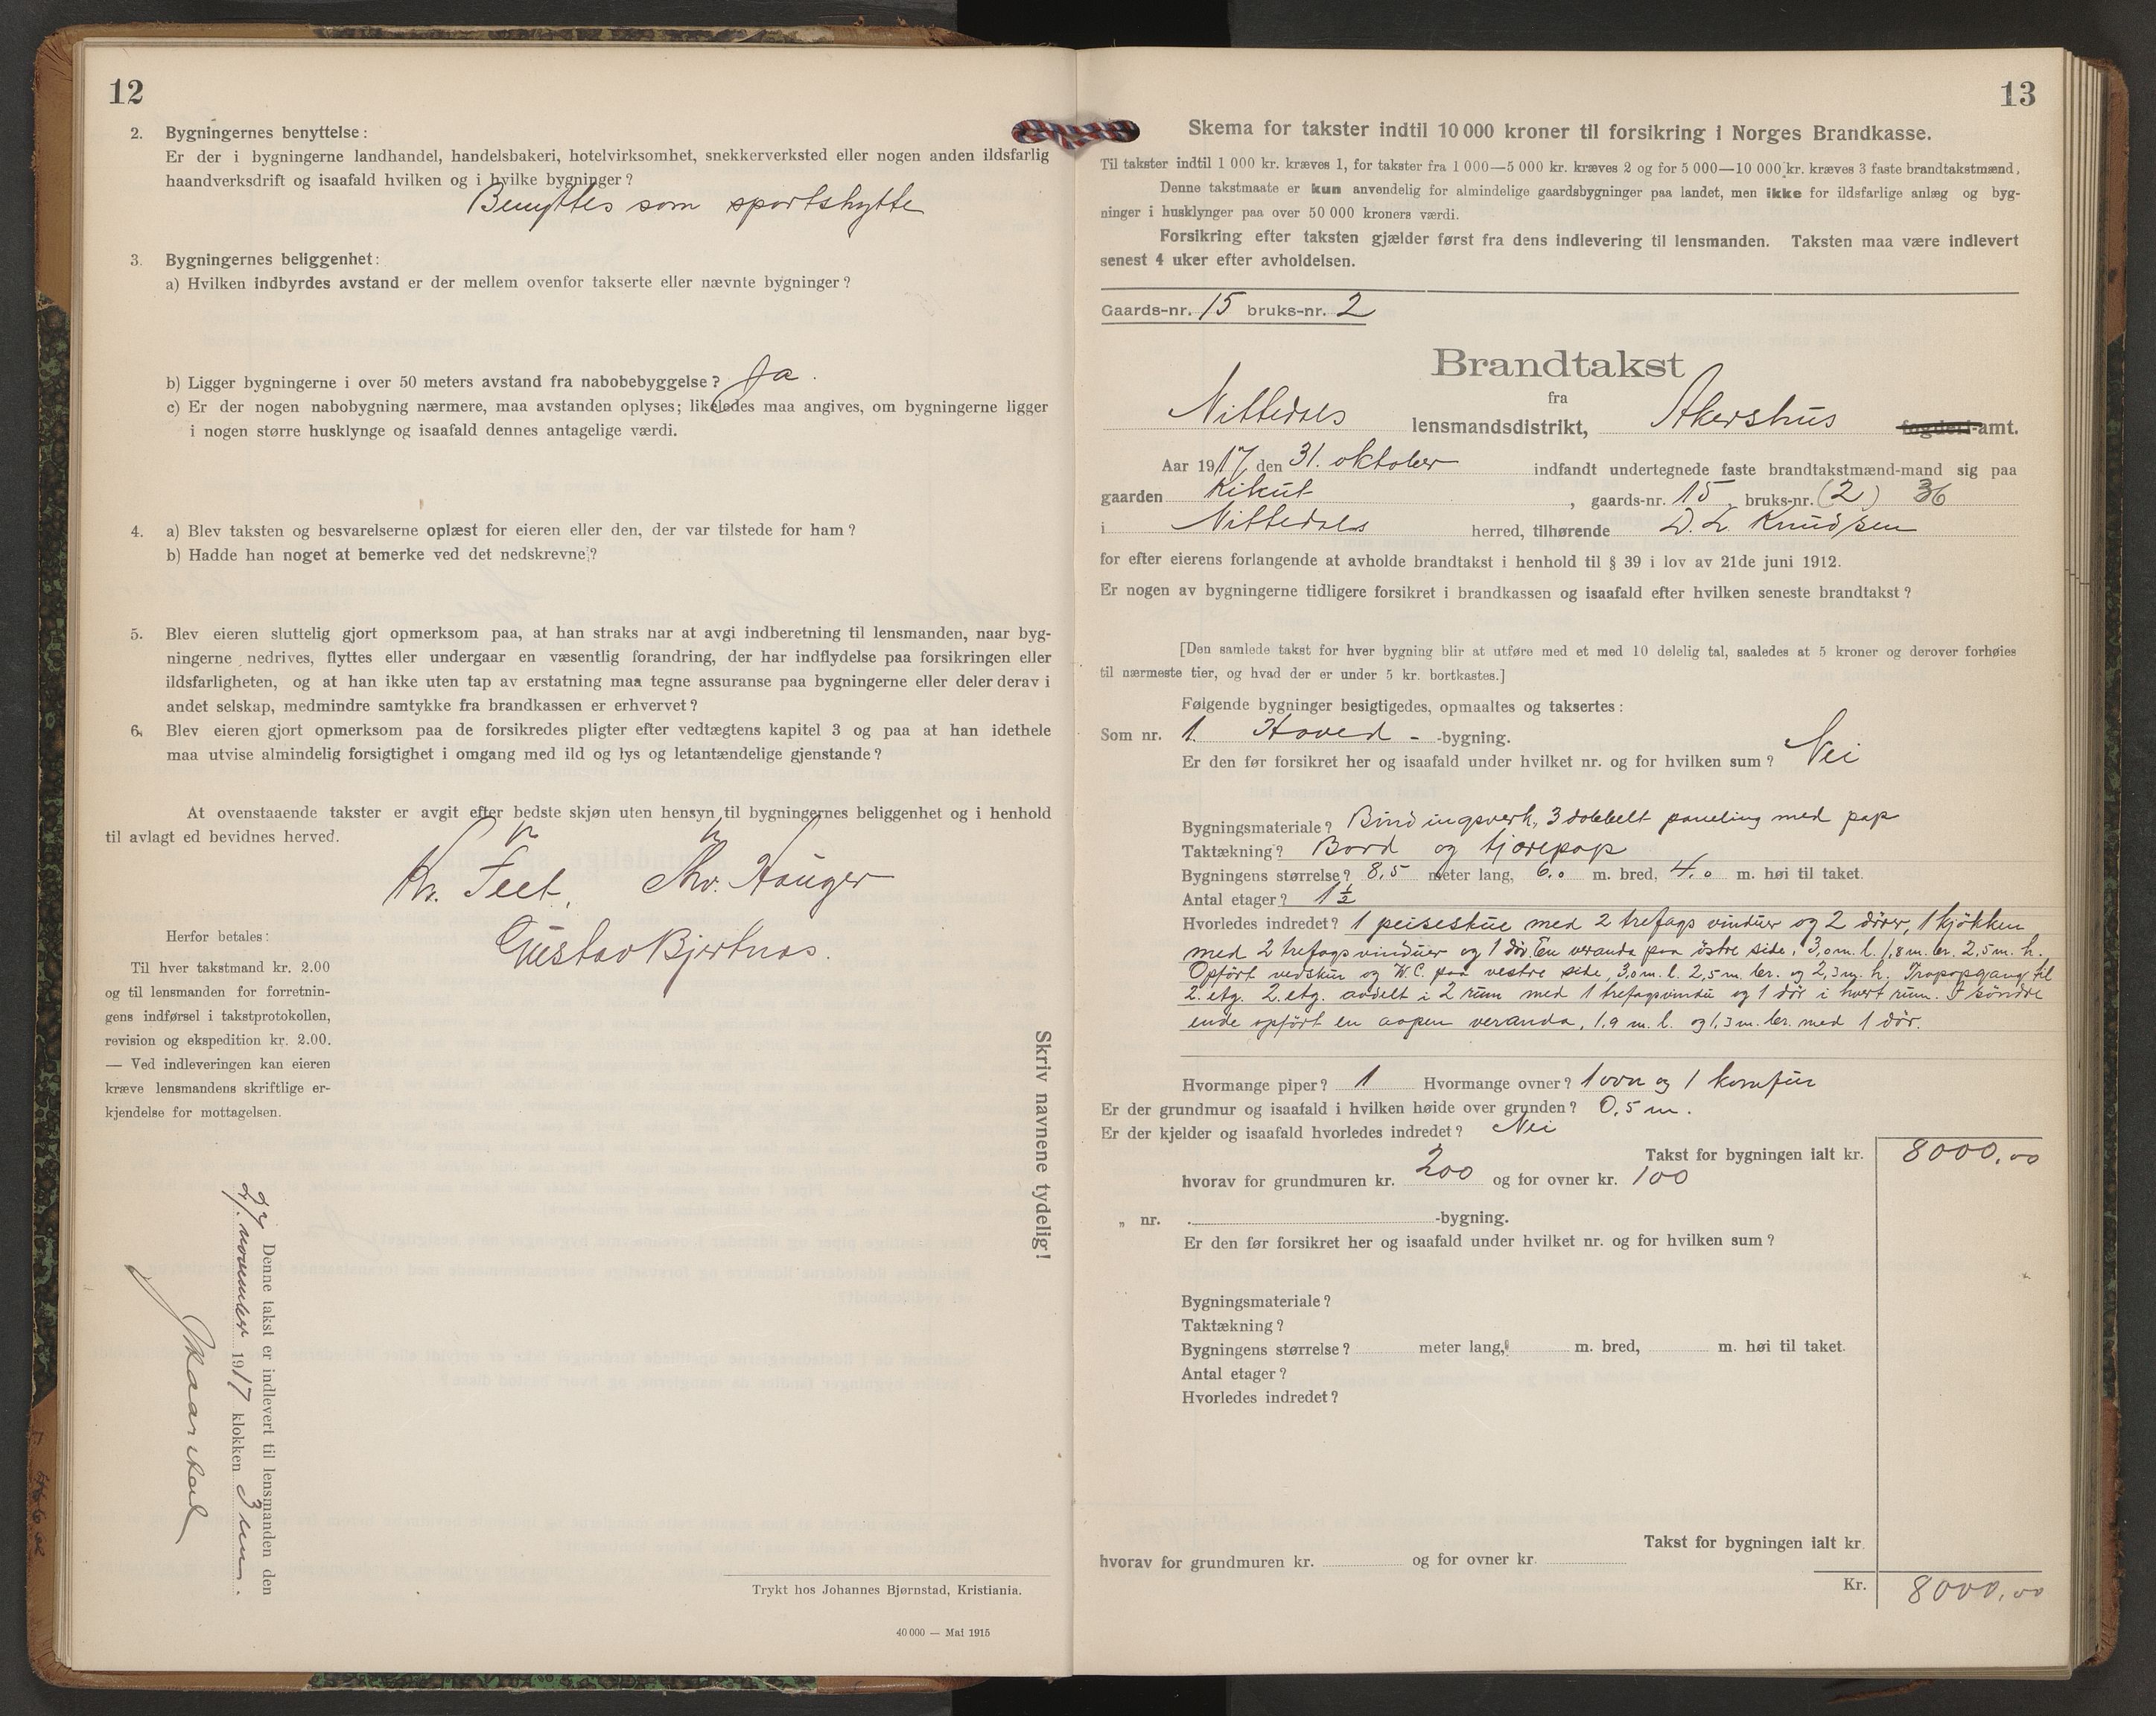 12
2. Bygningernes benyttelse:
Er der i bygningerne landhandel, handelsbakeri, hotelvirksomhet, snekkerverksted eller nogen anden ildsfarlig
haandverksdrift og isaafald hvilken og i hvilke bygninger?
Benyttes som sportshytte
3. Bygningernes beliggenhet:
a) Hvilken indbyrdes avstand er der mellem ovenfor takserte eller nævnte bygninger?
b) Ligger bygningerne i over 50 meters avstand fra nabobebyggelse? Ja.
c) Er der nogen nabobygning nærmere, maa avstanden oplyses; likeledes maa angives, om bygningerne ligger
i nogen større husklynge og isaafald dennes antagelige værdi.
4. a) Blev taksten og besvarelserne oplæst for eieren eller den, der var tilstede for ham?
b) Hadde han noget at bemerke ved det nedskrevne?
5. Blev eieren sluttelig gjort opmerksom paa, at han straks har at avgi indberetning til lensmanden, naar byg-
ningerne nedrives, flyttes eller undergaar en væsentlig forandring, der har indflydelse paa forsikringen eller
ildsfarligheten, og at han ikke uten tap av erstatning maa tegne assuranse paa bygningerne eller deler derav i
andet selskap, medmindre samtykke fra brandkassen er erhvervet?
6. Blev eieren gjort opmerksom paa de forsikredes pligter efter vedtægtens kapitel 3 og paa at han idethele
maa utvise almindelig forsigtighet i omgang med ild og lys og letantændelige gjenstande?
At ovenstaaende takster er avgit efter bedste skjøn uten hensyn til bygningernes beliggenhet og i henhold
til avlagt ed bevidnes herved.
Kr. Teet, Thv. Hauger
Gustav Bjertnæs.
Herfor betales:
Til hver takstmand kr. 2.00
og til lensmanden for forretnin-
gens indførsel i takstprotokollen,
revision og ekspedition kr. 2.00.
— Ved indleveringen kan eieren
kræve lensmandens skriftlige er-
kjendelse for mottagelsen.
Skriv navnene tydelig!
Denne takst er indlevert til lensmanden den
27. november 1917 klokken 3 em.
Trykt hos Johannes Bjørnstad, Kristiania.
40 000 — Mai 1915
13
Skema for takster indtil 10 000 kroner til forsikring i Norges Brandkasse.
Til takster indtil 1 000 kr. kræves 1, for takster fra 1 000—5 000 kr. kræves 2 og for 5 000—10 000 kr. kræves 3 faste brandtakstmænd.
Denne takstmaate er kun anvendelig for almindelige gaardsbygninger paa landet, men ikke for ildsfarlige anlæg og byg-
ninger i husklynger paa over 50 000 kroners værdi.
Forsikring efter taksten gjælder først fra dens indlevering til lensmanden. Taksten maa være indlevert
senest 4 uker efter avholdelsen.
Gaards-nr. 15 bruks-nr. 2
Brandtakst
fra
Nittedals lensmandsdistrikt, Akershus fogderi-amt.
Aar 1917 den 31. oktober indfandt undertegnede faste brandtakstmænd-mand sig paa
gaarden Kikut, gaards-nr. 15, bruks-nr. (2) 36
i Nittedals herred, tilhørende D. L. Knudsen
for efter eierens forlangende at avholde brandtakst i henhold til § 39 i lov av 21de juni 1912.
Er nogen av bygningerne tidligere forsikret i brandkassen og isaafald efter hvilken seneste brandtakst?
[Den samlede takst for hver bygning blir at utføre med et med 10 delelig tal, saaledes at 5 kroner og derover forhøies
til nærmeste tier, og hvad der er under 5 kr. bortkastes.]
Følgende bygninger besigtigedes, opmaaltes og taksertes:
Som nr. 1. Hoved- -bygning.
Er den før forsikret her og isaafald under hvilket nr. og for hvilken sum? Nei
Bygningsmateriale? Bindingsverk, 3 dobbelt paneling med pap
Taktækning? Bord og tjærepap
Bygningens størrelse? 8,5 meter lang, 6.0 m. bred, 4.0 m. høi til taket.
Antal etager? 1½
Hvorledes indredet? 1 peisestue med 2 trefags vinduer og 2 dører, 1 kjøkken
med 2 trefagsvinduer og 1 dør. En veranda paa östre side, 3,0 m. l. 1,8 m. br. 2,5 m. h.
Opført vedskur og W.C. paa vestre side, 3,0 m. l. 2,5 m. br. og 2,3 m. h. Trapopgang til
2. etg. 2. etg. avdelt i 2 rum med 1 trefagsvindu og 1 dör i hvert rum. I söndre
ende opfört en aapen veranda, 1.9 m. l. og 1,3 m. br. med 1 dör.
Hvormange piper? 1 Hvormange ovner? 1 ovn og 1 komfur
Er der grundmur og isaafald i hvilken høide over grunden? 0,5 m.
Er der kjelder og isaafald hvorledes indredet? Nei
Takst for bygningen ialt kr. 8000,00
hvorav for grundmuren kr. 200 og for ovner kr. 100
„ nr. -bygning.
Er den før forsikret her og isaafald under hvilket nr. og for hvilken sum?
Bygningsmateriale?
Taktækning?
Bygningens størrelse? meter lang, m. bred, m. høi til taket.
Antal etager?
Hvorledes indredet?
Takst for bygningen ialt kr.
hvorav for grundmuren kr. og for ovner kr.
Kr. 8000,00